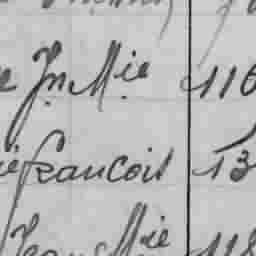 Jn Mie 116
francois 13
Jean Mie 118